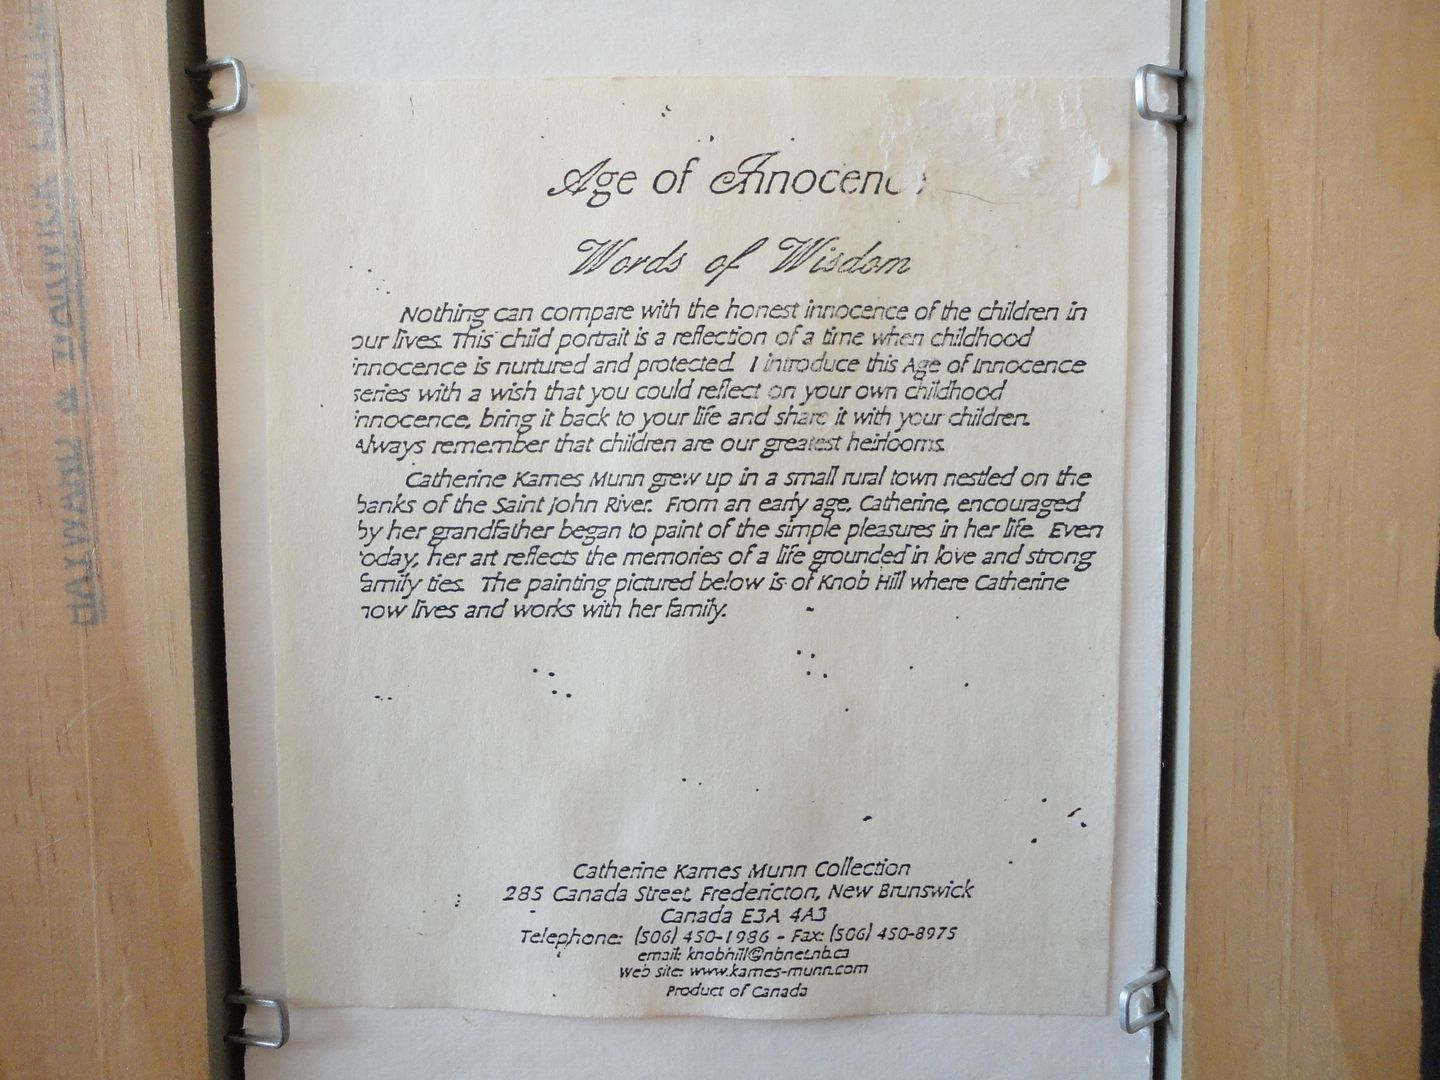 Age of Innocenc
Words of Wisdom
Nothing can compare with the honest innocence of the children in
our lives. This child portrait is a reflection of a time when childhood
innocence is nurtured and protected. I introduce this Age of Innocence
series with a wish that you could reflect on your own childhood
innocence, bring it back to your life and share it with your children.
Always remember that children are our greatest heirlooms.
Catherine Karnes Munn grew up in a small rural town nestled on the
banks of the Saint John River. From an early age, Catherine, encouraged
by her grandfather began to paint of the simple pleasures in her life. Even
today, her art reflects the memories of a life grounded in love and strong
family ties. The painting pictured below is of Knob Hill where Catherine
now lives and works with her family.
Catherine Karnes Munn Collection
285 Canada Street, Fredericton, New Brunswick
Canada E3A 4A3
Telephone: (506) 450-1986 - Fax: (506) 450-8975
email: knobhill@nbnet.nb.ca
Web site: www.karnes-munn.com
Product of Canada